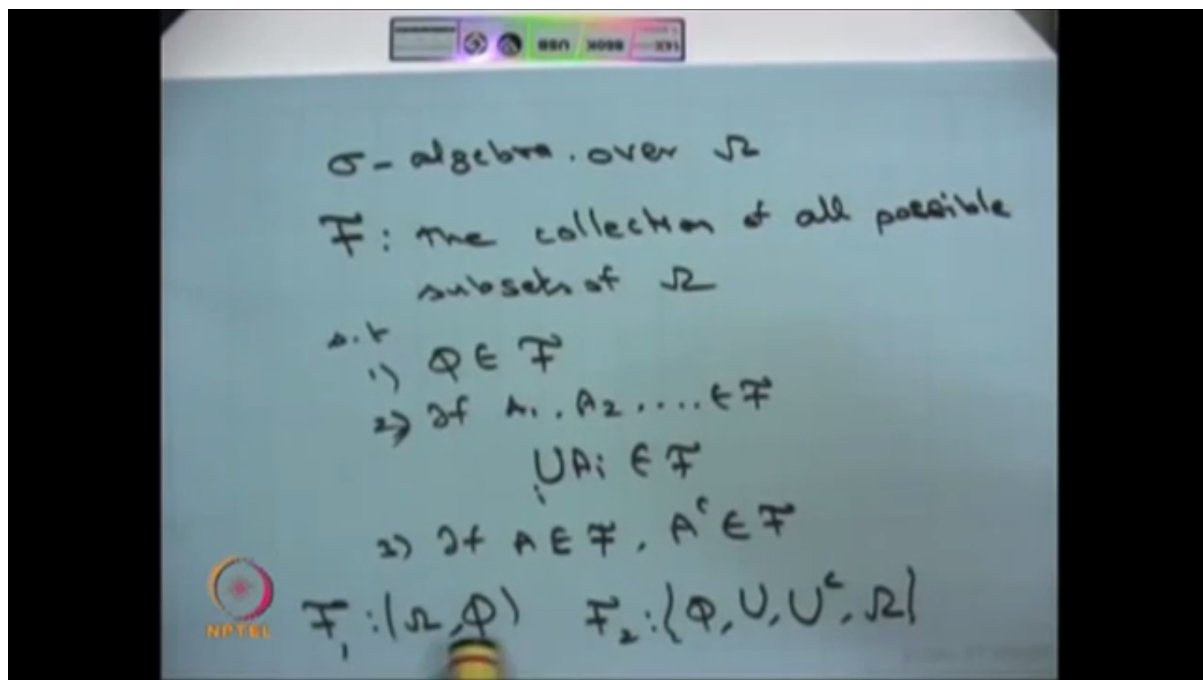 σ - algebra. over Ω
F : The collection of all possible
subsets of Ω
s.t
1) Φ ∈ F
2) If A₁, A₂, .... ∈ F
⋃ᵢ Aᵢ ∈ F
3) If A ∈ F, Aᶜ ∈ F
F₁ : (Ω, Φ) F₂ : {Φ, U, Uᶜ, Ω}
NPTEL